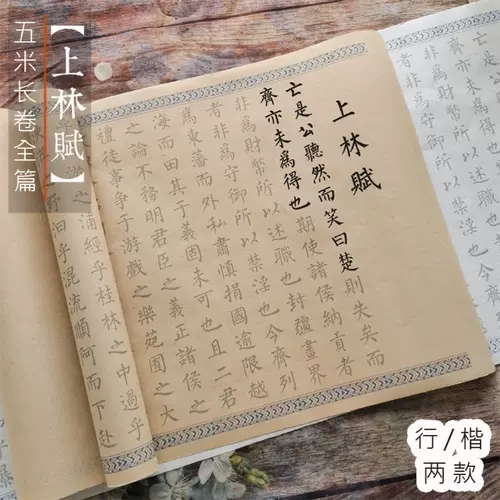 【上林賦】
五米长卷全篇
上林賦
亡是公聽然而笑曰楚則失矣而
齊亦未爲得也夫使諸侯納貢者
非爲財幣所以述職也封疆畫界
者非爲守御所以禁淫也今齊列
爲東藩而外私肅慎捐國逾限越
海而田其于義固未可也且二君
之論不務明君臣之義正諸侯之
禮徒事爭于游戲之樂苑囿之大
之浦經乎桂林之中過乎
野汩乎混流順阿而下赴
行/楷
两款